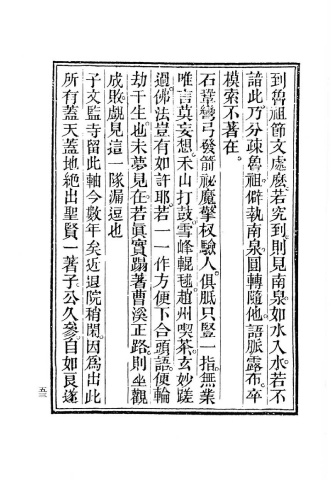 到魯祖節文處麽若究到則見南泉如水入水若不
諳此乃分疎魯祖僻執南泉圓轉隨他語脈露布卒
模索不著在
石鞏彎弓發箭祕魔擎杈驗人俱胝只豎一指無業
唯言莫妄想禾山打鼓雪峰輥毬趙州喫茶玄妙蹉
過佛法豈有如許耶若一一作方便下合頭語便輪
劫千生也未夢見在若眞實蹋著曹溪正路則坐觀
成敗覷見這一隊漏逗也
子文監寺留此軸今數年矣近退院稍閑因爲出此
所有蓋天蓋地絶出聖賢一著子公久參自如良遂
五三